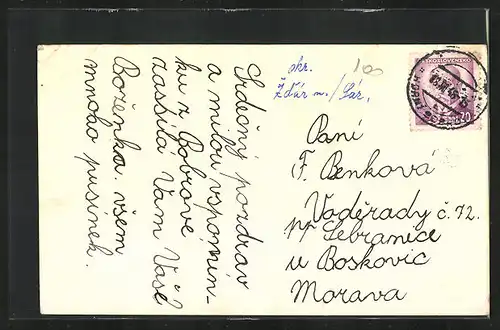 Srdečný pozdrav
a milou vspomín-
ku z Bobrové
zassílá Vám Vaše
Boženka. všem
mnoho pusinek.
okr.
Žďár n./Sáz.
100
ČESKOSLOVENSKO
Paní
F. Benková
Vaděrady č. 72.
pp Lebranice
u Boskovic
Morava